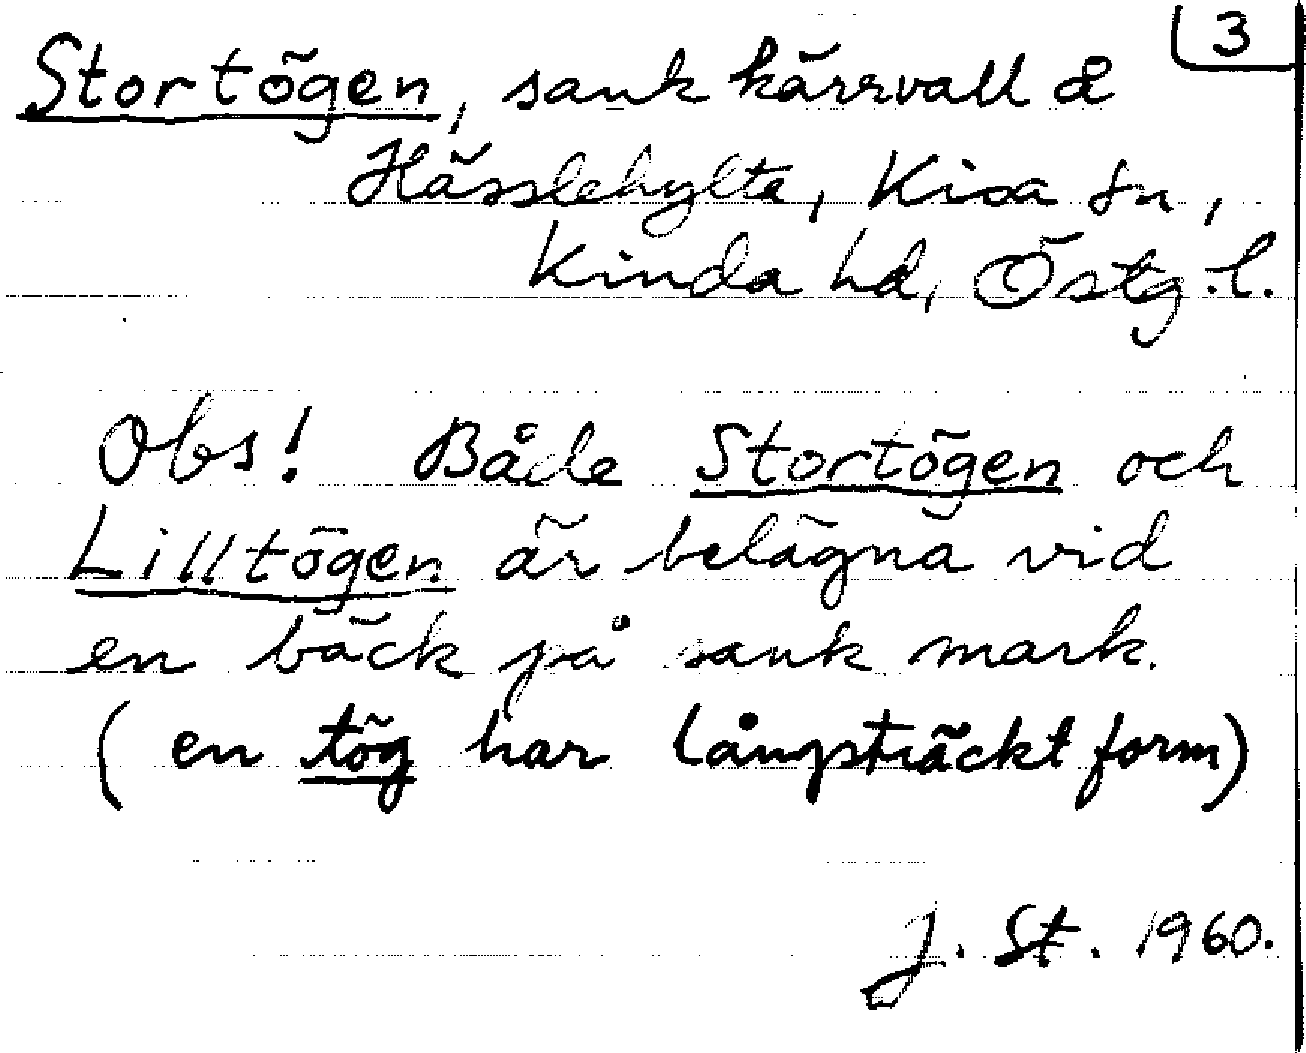 3
Stortögen, sank kärrvall å
Hässlehylte, Kisa sn,
Kinda hd, Östg.l.
Obs! Både Stortögen och
Lilltögen är belägna vid
en bäck på sank mark.
(en tög har långsträckt form)
J. St. 1960.